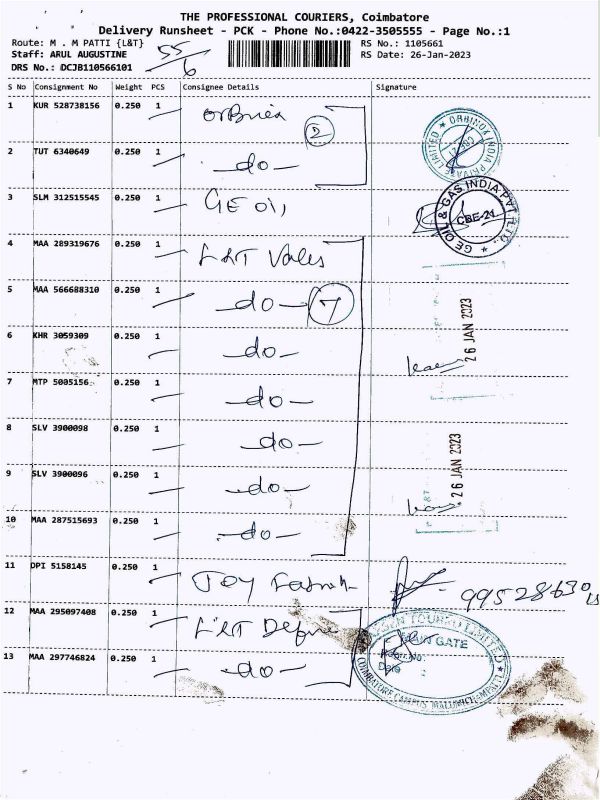 THE PROFESSIONAL COURIERS, Coimbatore
Delivery Runsheet - PCK - Phone No.:0422-3505555 - Page No.:1
Route: M . M PATTI {L&T}
RS No.: 1105661
Staff: ARUL AUGUSTINE
55/6
RS Date: 26-Jan-2023
DRS No.: DCJB110566101
S No Consignment No Weight PCS Consignee Details Signature
1 KUR 528738156 0.250 1
2
ORBINOX INDIA PRIVATE LIMITED
2 TUT 6340649 0.250 1 -do-
3 SLM 312515545 0.250 1 GE Oil
GE OIL & GAS INDIA PVT. LTD.
CBE-21
4 MAA 289319676 0.250 1 L&T Valves
5 MAA 566688310 0.250 1 -do- 7
26 JAN 2023
6 KHR 3059309 0.250 1 -do-
7 MTP 5005156 0.250 1 -do-
8 SLV 3900098 0.250 1 -do-
26 JAN 2023
9 SLV 3900096 0.250 1 -do-
10 MAA 287515693 0.250 1 -do-
11 DPI 5158145 0.250 1 JOY
12 MAA 295097408 0.250 1 L&T Defne
LIMITED
GATE
Date :
COIMBATORE CAMPUS
13 MAA 297746824 0.250 1 -do-